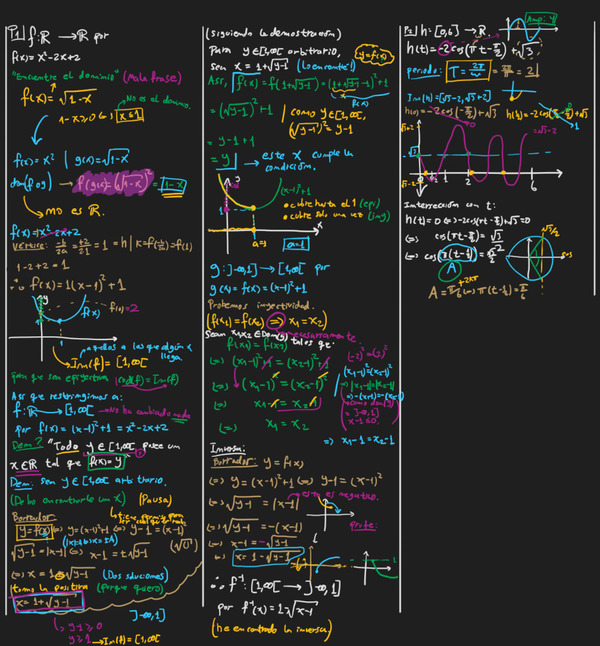 P1] f: ℝ → ℝ por
f(x) = x²-2x+2
"Encuentre el dominio" (Mala frase)
f(x) = √1-x
No es el dominio.
1-x ≥ 0 ⇔ x ≤ 1
f(x) = x² | g(x) = √1-x
dom(f∘g) → f(g(x)) = (√1-x)² = 1-x
→ no es ℝ.
f(x) = 1x²-2x+2
Vértice: -b/2a = +2/2·1 = 1 = h | k = f(-b/2a) = f(1)
1-2+2 = 1
∴ f(x) = 1(x-1)²+1
y
f(0) = 2
f(x)
1
aquellos a los que algún x llega.
→ Im(f) = [1,∞[
para que sea epiyectiva (cod(f) = Im(f))
Así que restringimos a:
f: ℝ → [1,∞[ → No ha cambiado nada
por f(x) = (x-1)²+1 = x²-2x+2
Dem ? "Todo y ∈ [1,∞[ posee un
x ∈ ℝ tal que f(x) = y"
Dem: sea y ∈ [1,∞[ arbitrario.
(Debo encontrarle un x) (Pausa)
Borrador
y = f(x) ⇔ y = (x-1)²+1 ⇔ y-1 = (x-1)²
√y-1 = |x-1| ⇔ x-1 = ±√y-1
⇔ x = 1±√y-1 (Dos soluciones)
tomo la positiva (porque quiero)
x = 1+√y-1
y-1 ≥ 0
y ≥ 1 → Im(f) = [1,∞[
]-∞,1]
(siguiendo la demostración)
Para y ∈ [1,∞[ arbitrario,
y = f(x)
sea x = 1+√y-1 (Lo encontré!)
Así, f(x) = f(1+√y-1) = (1+√y-1-1)²+1
f(x)
= (√y-1)²+1 | como y ∈ [1,∞[, (√y-1)² = y-1
= y-1+1
= y → este x cumple la condición.
y
(x-1)²+1
• cubre hasta el 1 (epi)
• cubre solo una vez (iny)
1
x
a=1
a=1
g: ]-∞,1] → [1,∞[ por
g(x) = f(x) = (x-1)²+1
Probemos inyectividad.
(f(x₁) = f(x₂) ⇒ x₁ = x₂)
necesariamente.
Sean x₁,x₂ ∈ Dom(g) tales que:
f(x₁) = f(x₂)
(-2)² = (2)²
⇔ (x₁-1)²+1 = (x₂-1)²+1
⇔ (x₁-1)² = (x₂-1)²
(x₁-1)² = (x₂-1)²
⇒ |x₁-1| = |x₂-1|
⇒ -(x₁-1) = -(x₂-1)
como dom(g) = ]-∞,1]
x-1 ≤ 0
⇔ x₁-1 = x₂-1
⇔ x₁ = x₂
⇒ x₁-1 = x₂-1
Inversa:
Borrador: y = f(x)
⇔ y = (x-1)²+1 ⇔ y-1 = (x-1)²
⇔ √y-1 = |x-1| → esto es negativo.
⇔ √y-1 = -(x-1)
⇔ x-1 = -√y-1
x = 1-√y-1
∴ f⁻¹: [1,∞[ → ]-∞,1]
por f⁻¹(x) = 1-√x-1
(he encontrado la inversa)
h = [0,6] → ℝ
Amp: 4
h(t) = -2cos(πt-π/2)+√3
periodo: T = 2π/w = 2π/π = 2
Im(h) = [√3-2, √3+2]
h(0) = -2cos(-π/2)+√3
√3+2
√3
√3-2
1
2
6
t
Intersección con t:
h(t) = 0 ⇔ -2cos(πt-π/2)+√3 = 0
⇔ cos(πt-π/2) = √3/2
⇔ cos(π(t-½)) = √3/2
√3/2
cos
A
A = π/6 +2kπ ⇔ π(t-½) = π/6